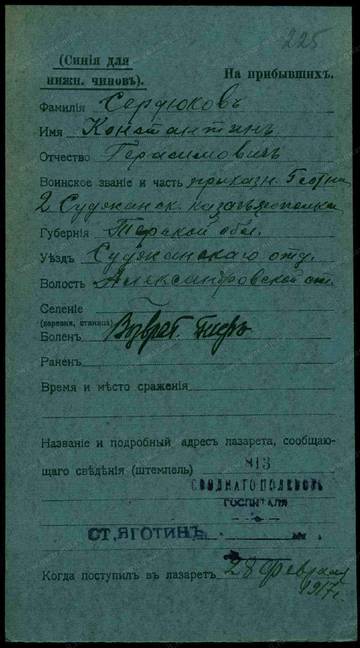 225
(Синія для
нижн. чиновъ).
На прибывшихъ.
Фамилія Сердюковъ
Имя Константинъ
Отчество Герасимовичъ
Воинское званіе и часть приказн.
2 казачьяго полка
Губернія Терской обл.
Уѣздъ отд.
Волость Александровской ст.
Селеніе
(деревня, станица)
Боленъ Возврат. тифъ
Раненъ
Время и мѣсто сраженія
Названіе и подробный адресъ лазарета, сообщаю-
щаго свѣдѣнія (штемпель) 813
СВОДНАГО ПОЛЕВОГО
ГОСПИТАЛЯ
СТ. ЯГОТИНЪ
Когда поступилъ въ лазаретъ 28 Февраля
1917 г.